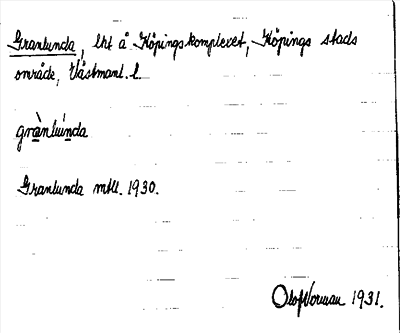 Granlunda, lht å Köpingskomplexet, Köpings stads
område, Västmanl. l.
grànlúnda
Granlunda mtll. 1930.
Olof Norman 1931.